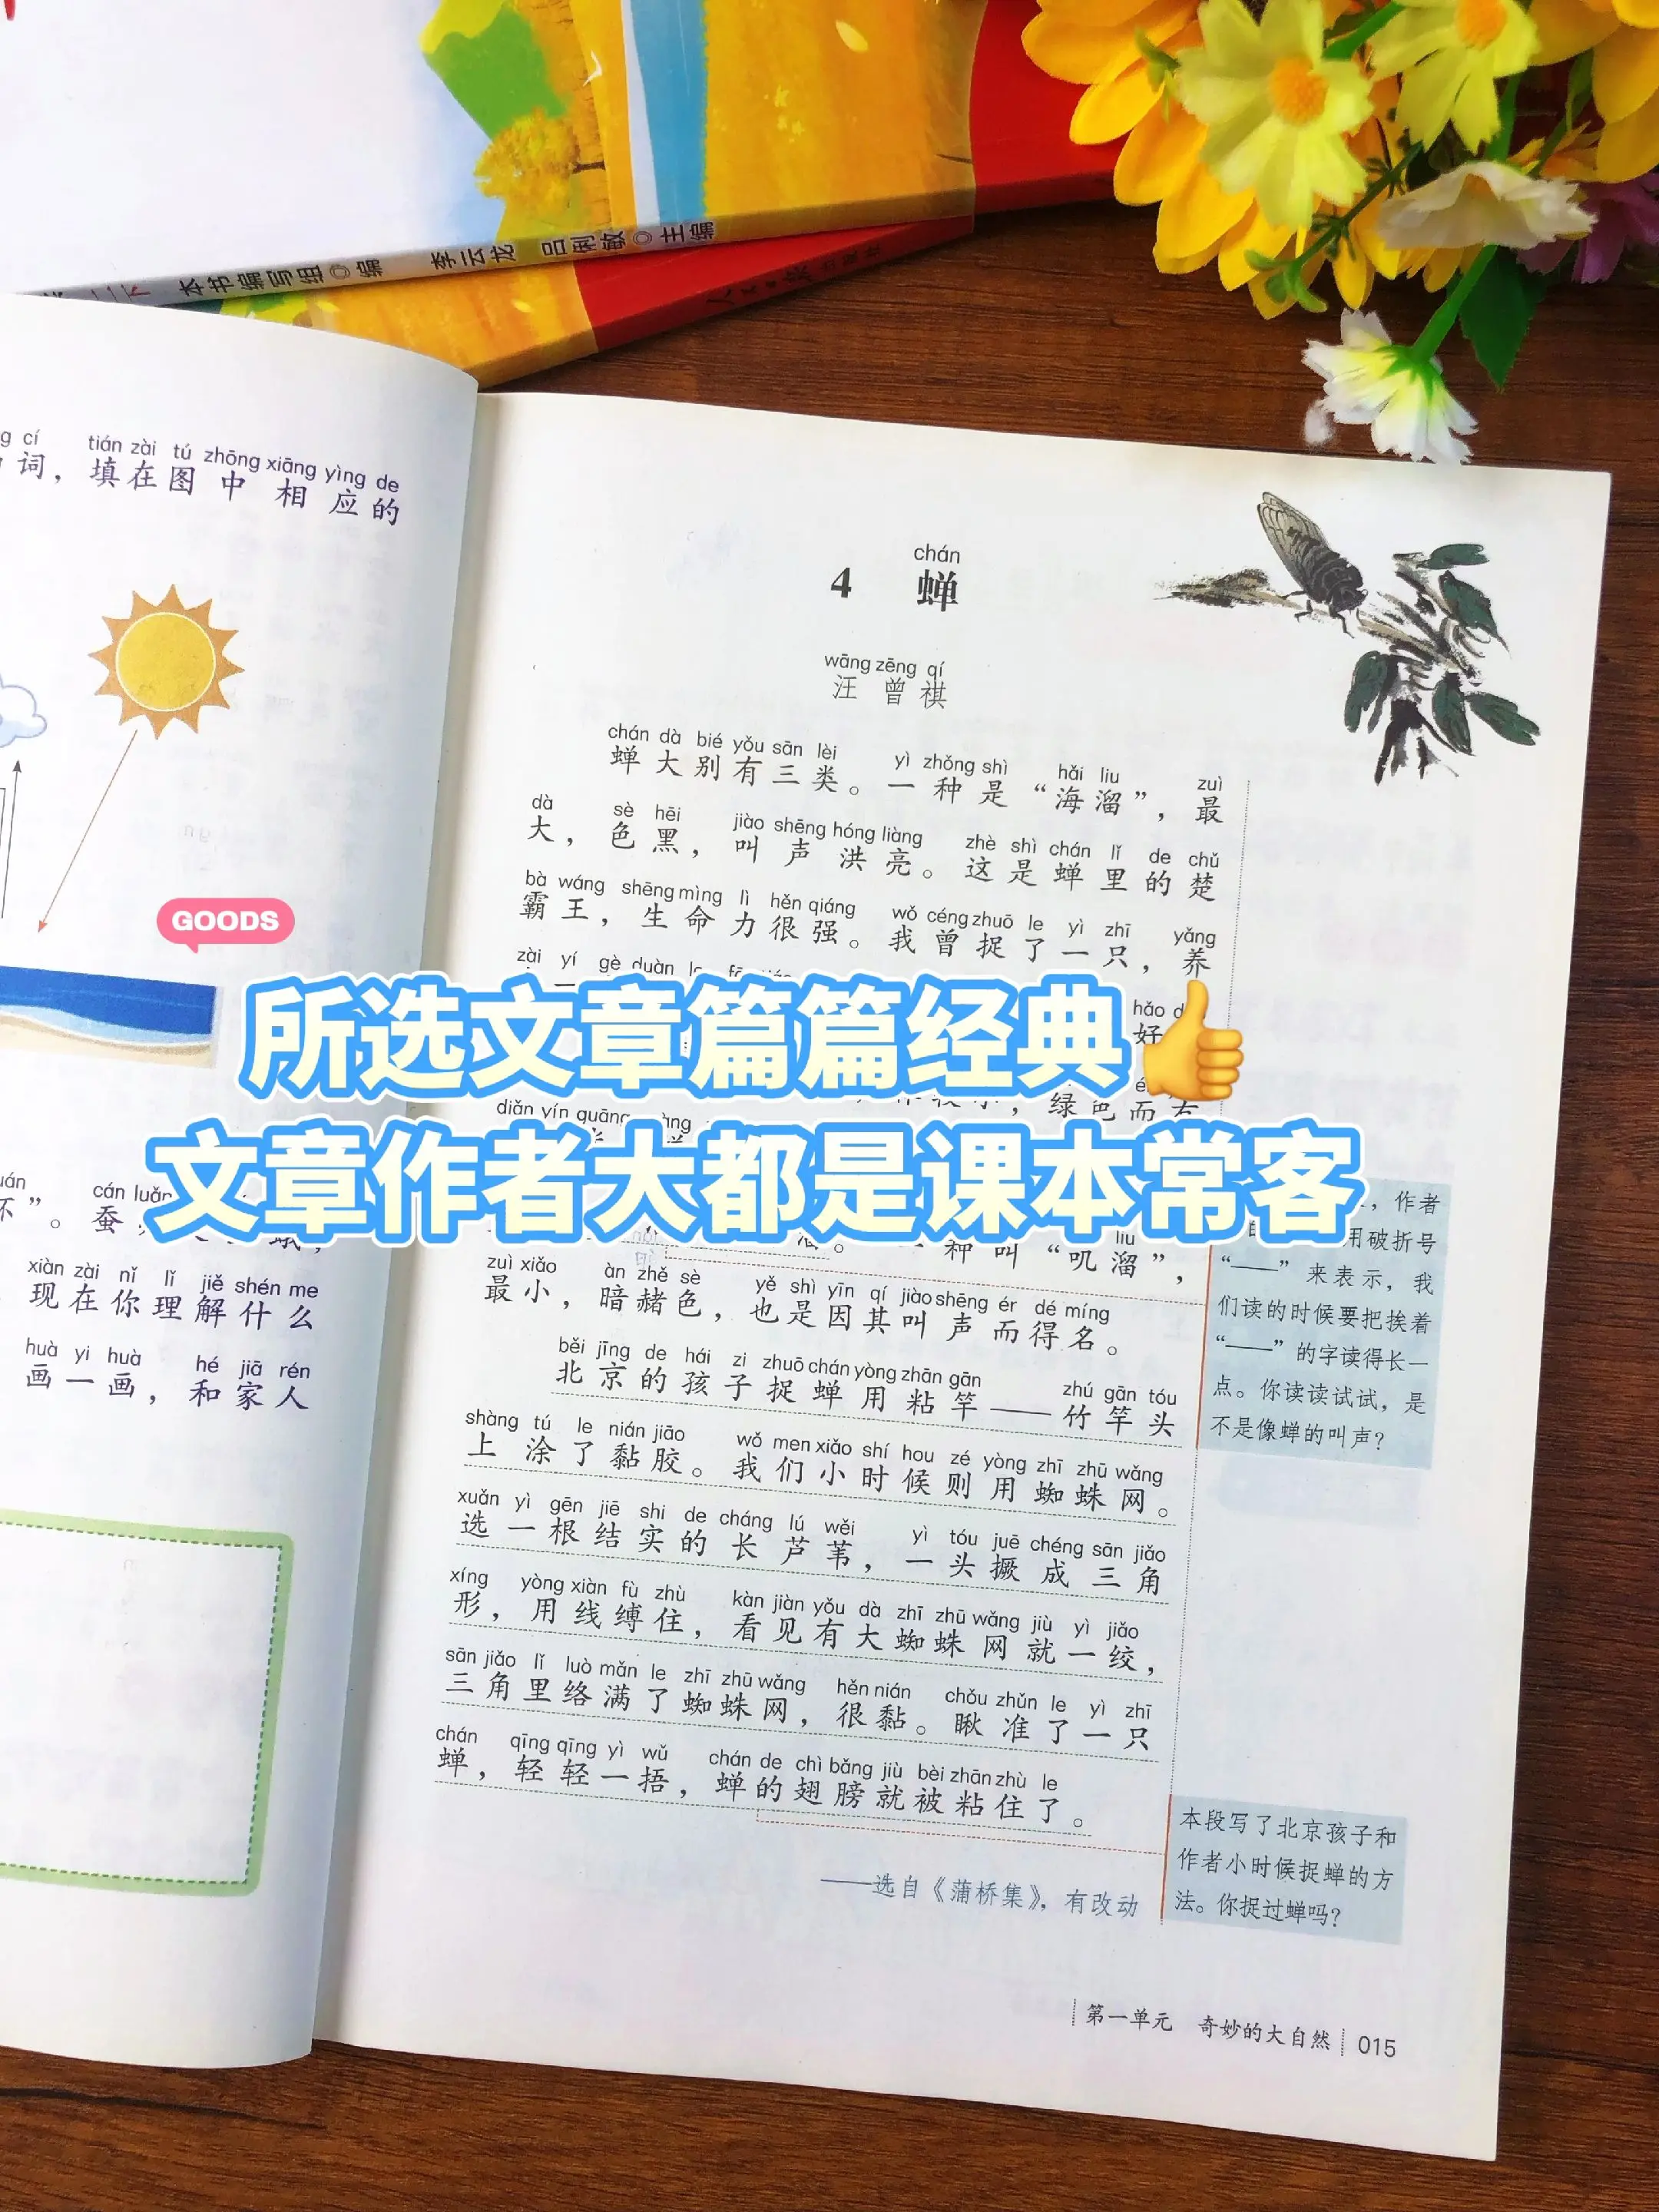 二下 本书编写组◎编 李云龙 吕俐敏◎主编
人民日报出版社
g cí tián zài tú zhōng xiāng yìng de
词，填在图中相应的
GOODS
cán luǎn
坏”。蚕
xiàn zài nǐ lǐ jiě shén me
现在你理解什么
huà yi huà hé jiā rén
画一画，和家人
chán
4 蝉
wāng zēng qí
汪曾祺
chán dà bié yǒu sān lèi yì zhǒng shì hǎi liu zuì
蝉大别有三类。一种是“海溜”，最
dà sè hēi jiào shēng hóng liàng zhè shì chán lǐ de chǔ
大，色黑，叫声洪亮。这是蝉里的楚
bà wáng shēng mìng lì hěn qiáng wǒ céng zhuō le yì zhī yǎng
霸王，生命力很强。我曾捉了一只，养
zài yí gè duàn
hǎo
好
所选文章篇篇经典👍
绿色而有
diǎn yín guāng
文章作者大都是课本常客
liu
种叫“叽溜”，
zuì xiǎo àn zhě sè yě shì yīn qí jiào shēng ér dé míng
最小，暗赭色，也是因其叫声而得名。
běi jīng de hái zi zhuō chán yòng zhān gān zhú gān tóu
北京的孩子捉蝉用粘竿——竹竿头
shàng tú le nián jiāo wǒ men xiǎo shí hou zé yòng zhī zhū wǎng
上涂了黏胶。我们小时候则用蜘蛛网。
xuǎn yì gēn jiē shi de cháng lú wěi yì tóu juē chéng sān jiǎo
选一根结实的长芦苇，一头撅成三角
xíng yòng xiàn fù zhù kàn jiàn yǒu dà zhī zhū wǎng jiù yì jiǎo
形，用线缚住，看见有大蜘蛛网就一绞，
sān jiǎo lǐ luò mǎn le zhī zhū wǎng hěn nián chǒu zhǔn le yì zhī
三角里络满了蜘蛛网，很黏。瞅准了一只
chán qīng qīng yì wǔ chán de chì bǎng jiù bèi zhān zhù le
蝉，轻轻一捂，蝉的翅膀就被粘住了。
——选自《蒲桥集》，有改动
，作者
用破折号
“——”来表示，我
们读的时候要把挨着
“——”的字读得长一
点。你读读试试，是
不是像蝉的叫声？
本段写了北京孩子和
作者小时候捉蝉的方
法。你捉过蝉吗？
第一单元 奇妙的大自然 015